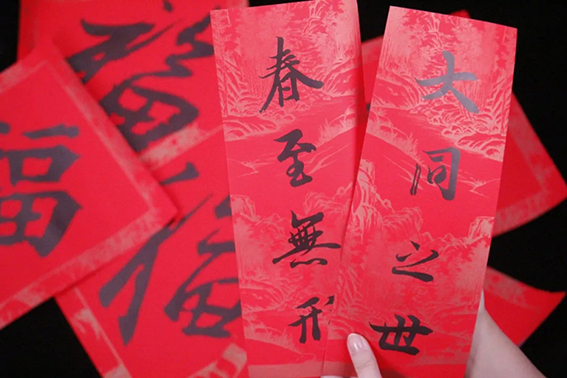 福
福
福
春至無
大同之世